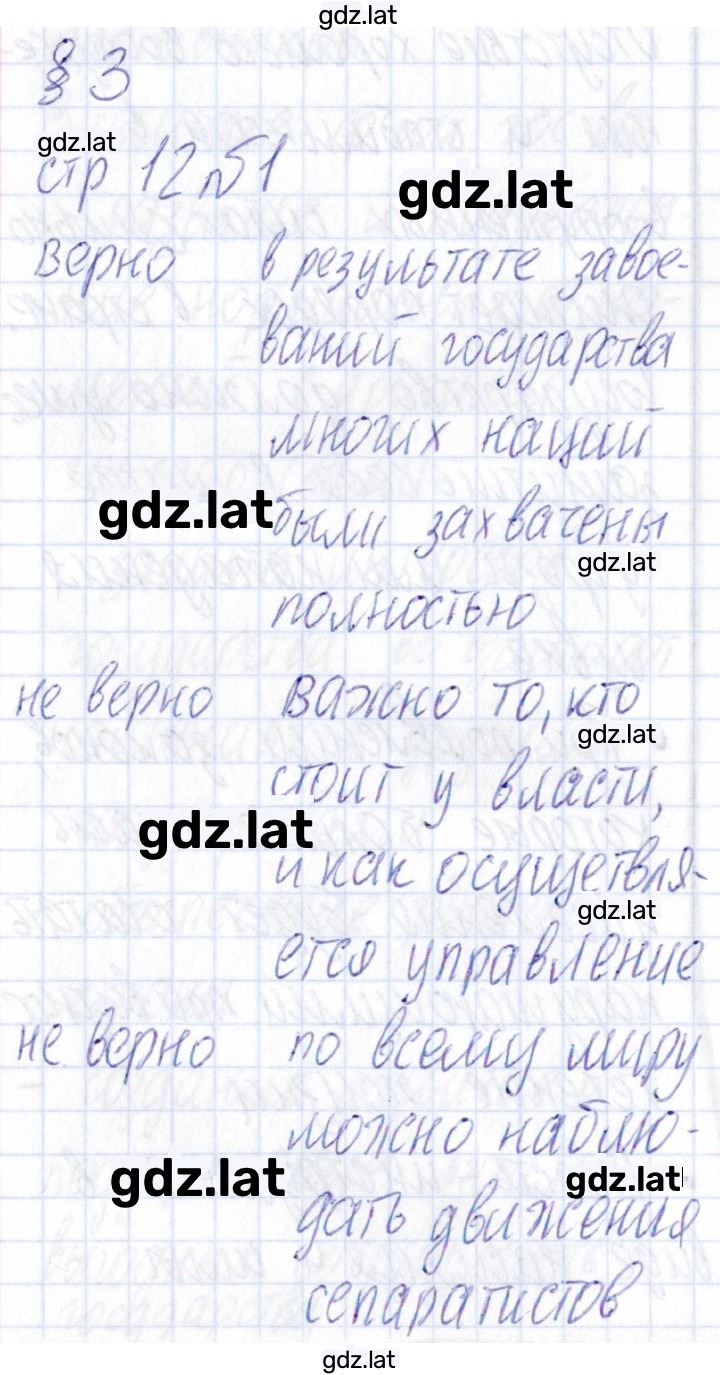 gdz.lat
§ 3
gdz.lat
стр 12 №1
gdz.lat
верно в результате завое-
ваний государства
многих наций
gdz.lat были захвачены
gdz.lat
полностью
не верно важно то, кто
gdz.lat
стоит у власти,
gdz.lat
и как осуществля-
gdz.lat
ется управление
не верно по всему миру
можно наблю-
gdz.lat gdz.lat
дать движения
сепаратистов
gdz.lat